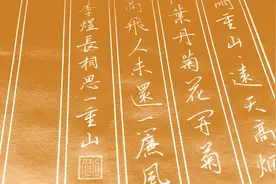 重山遠天高烟
葉丹菊花开菊
高飛人未還一簾風
李煜長相思一重山